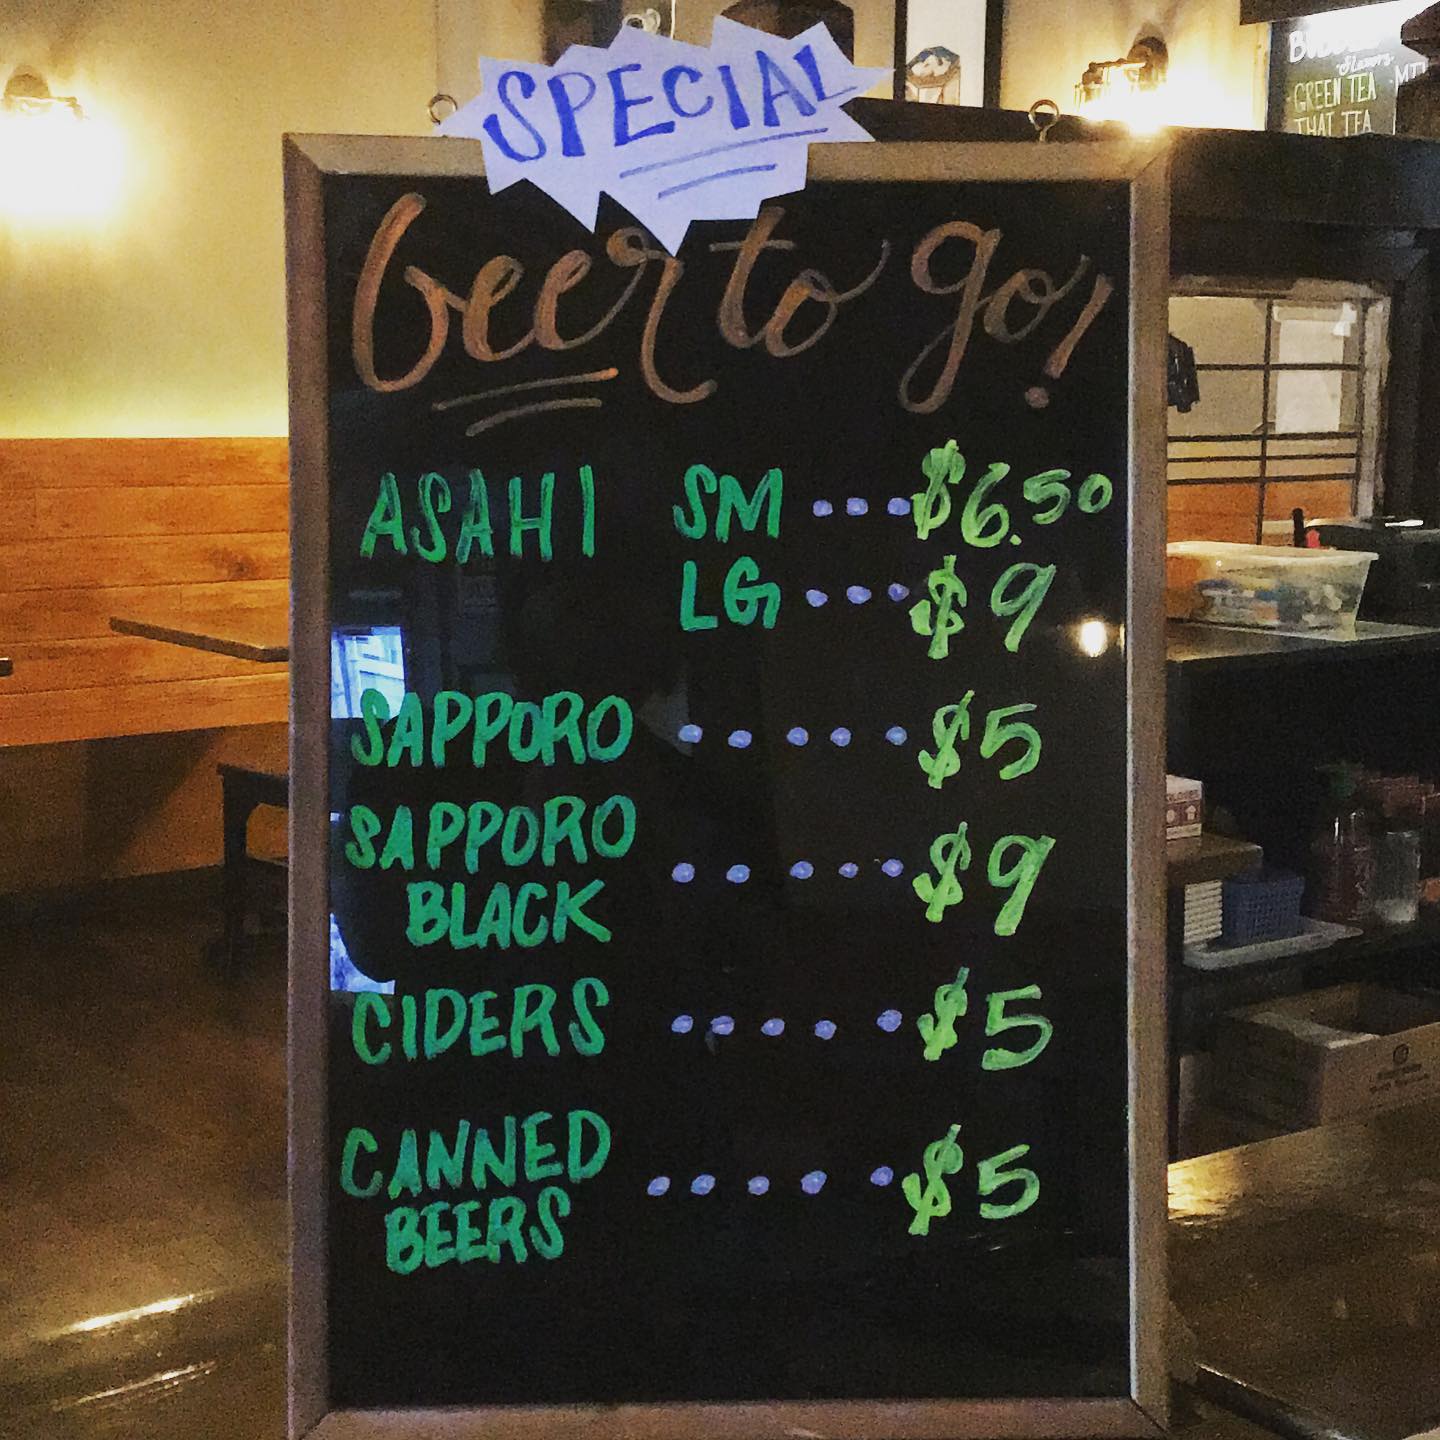 SPECIAL
beer to go!
ASAHI SM ... $6.50
LG ... $9
SAPPORO ..... $5
SAPPORO
BLACK ..... $9
CIDERS ..... $5
CANNED
BEERS ..... $5
Flavors
GREEN TEA
THAI TEA